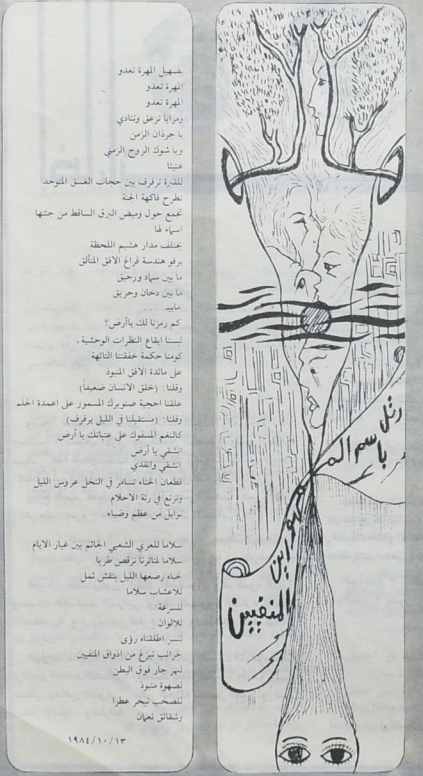 بصهيل المهرة تعدو
المهرة تعدو
المهرة تعدو
ومرايا تزعق وتنادي
يا جرذان الزمن
ويا شوك الروح الزمني
هنيئا
للقبرة ترفرف بين حجات الغسق المتوحد
تطرح فاكهة الجنة
تجمع حول وميض البرق الساقط من جنتها
اسماء لها
يختلف مدار هشيم اللحظة
يرفو هندسة فراغ الافق المتألق
ما بين سماد ورحيق
ما بين دخان وحريق
مابيـ ....
كم رمزنا لك ياأرض؟
لبسنا ايقاع النظرات الوحشية.
كومنا حكمة خفقتنا التائهة
على مائدة الافق المنبوذ
وقلنا: (خلق الانسان ضعيفا)
علقنا احجية صنوبرك المسمور على اعمدة الحلم
وقلنا: (مستقبلنا في الليل يرفرف)
كالنغم المسفوك على عتباتك يا أرض
انشقي يا أرض
انشقي واتقدي
قطعان الحناء تسامر في النخل عروس الليل
وترتع في رئة الاحلام
توابل من عظم وضياء

سلاما للعري الشعبي الجاثم بين غبار الايام
سلاما لمنائرنا ترقص طربا
لحباه رصعها الليل بنقش ثمل
للاعشاب سلاما
للسرعة
للالوان
لنسر اطلقناه رؤى
خرائب تبزغ من اذواق المنفيين
لنهر جار فوق البطن
لصهوة منبوذ
للصخب تبخر عطرا
وشقائق نعمان
١٩٨٤/١٠/١٣
رتل
باسم الـ
مهوراين
المنفيين